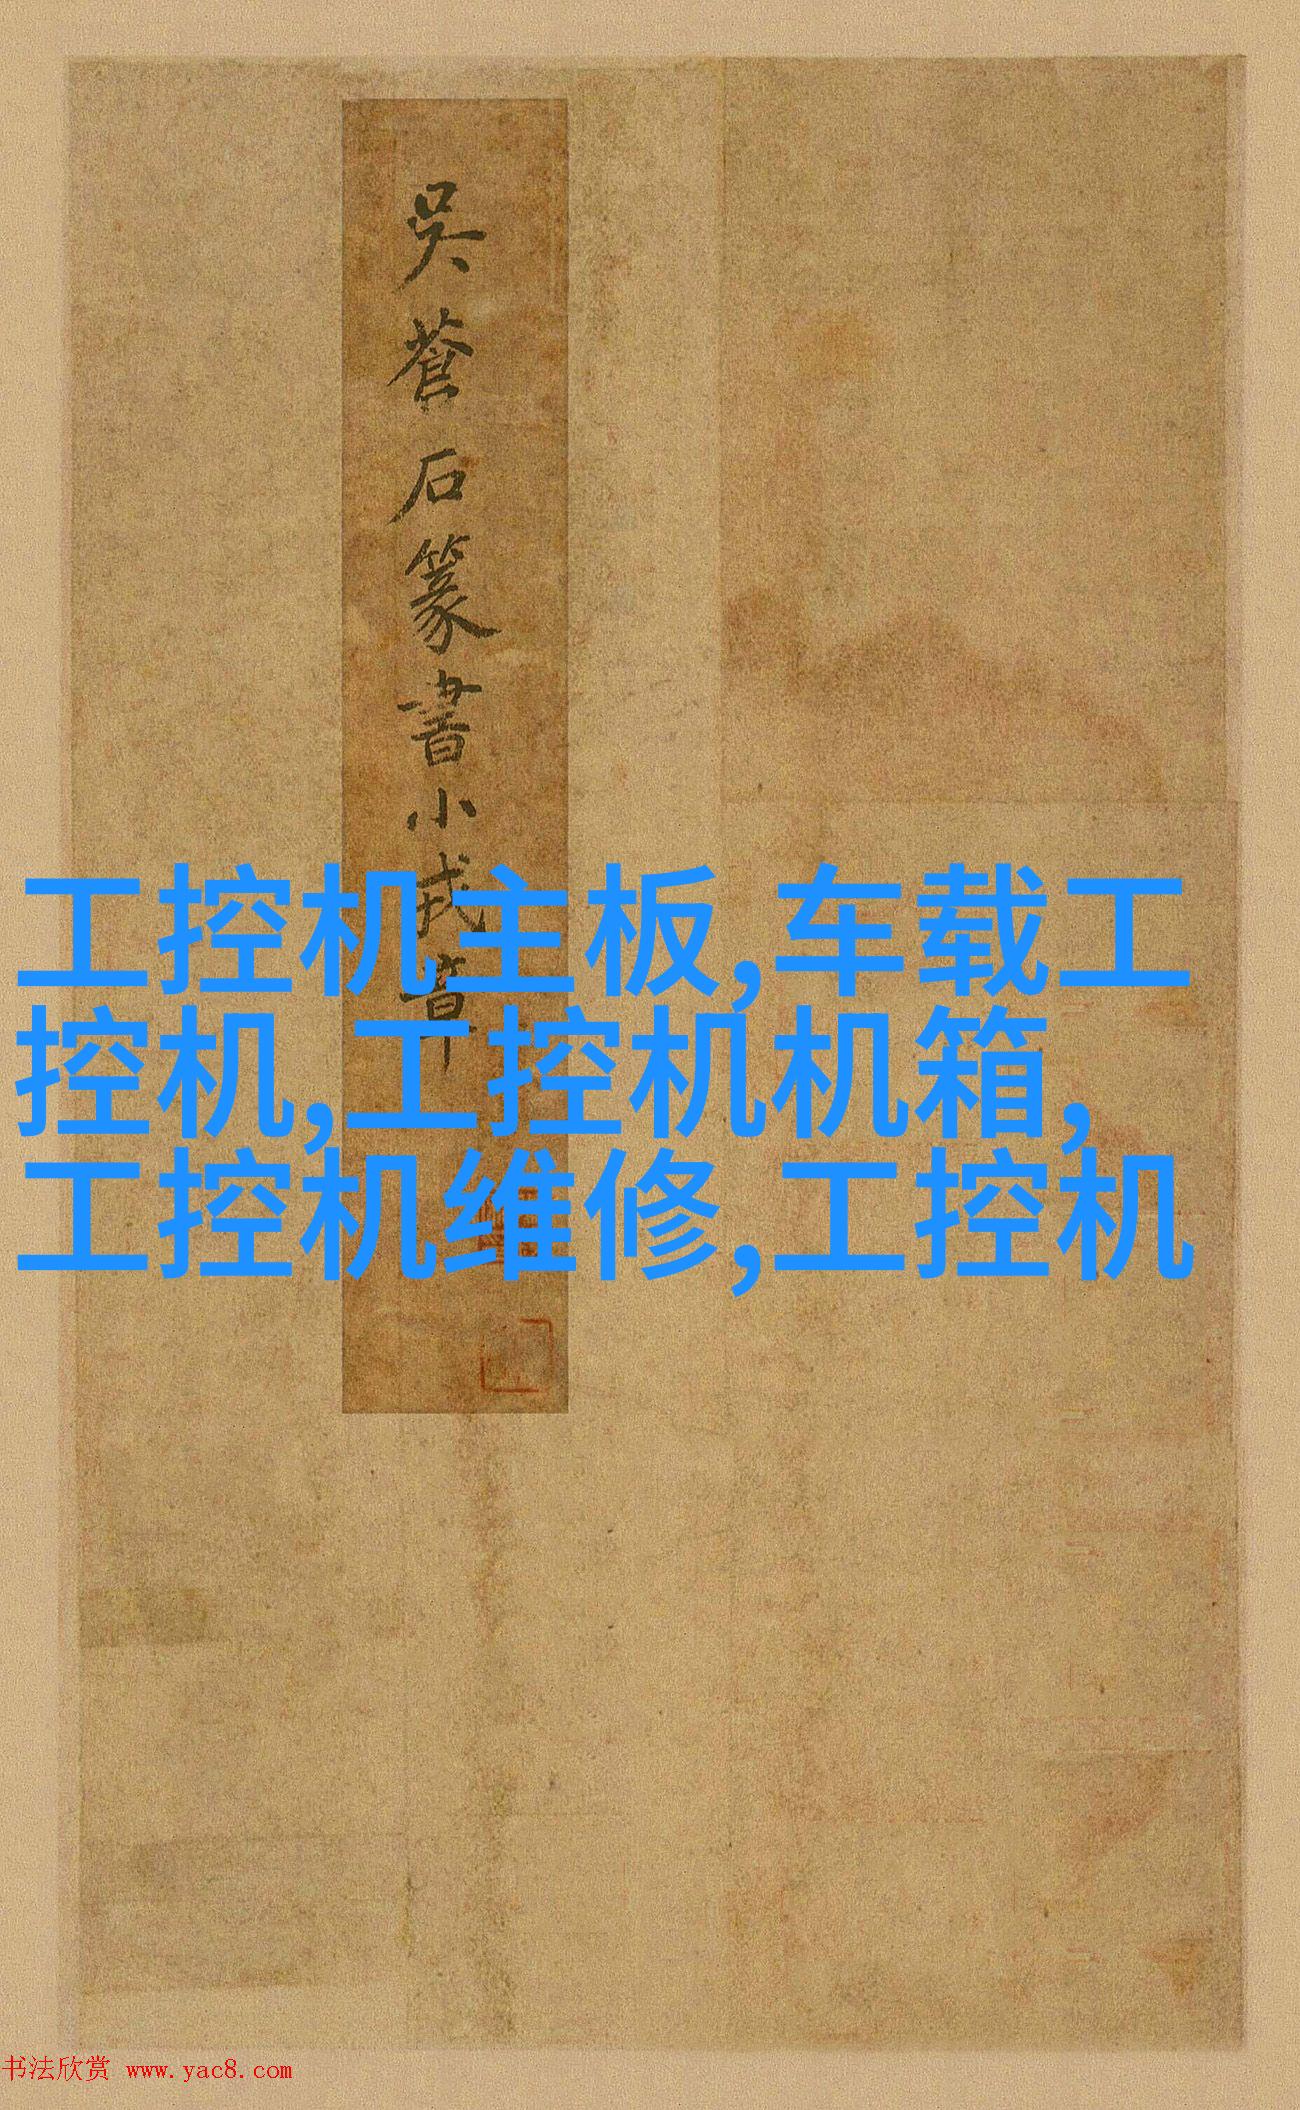 吳蒼石篆書小戎章
工控机主板,车载工
控机,工控机机箱,
工控机维修,工控机
书法欣赏 www.yac8.com